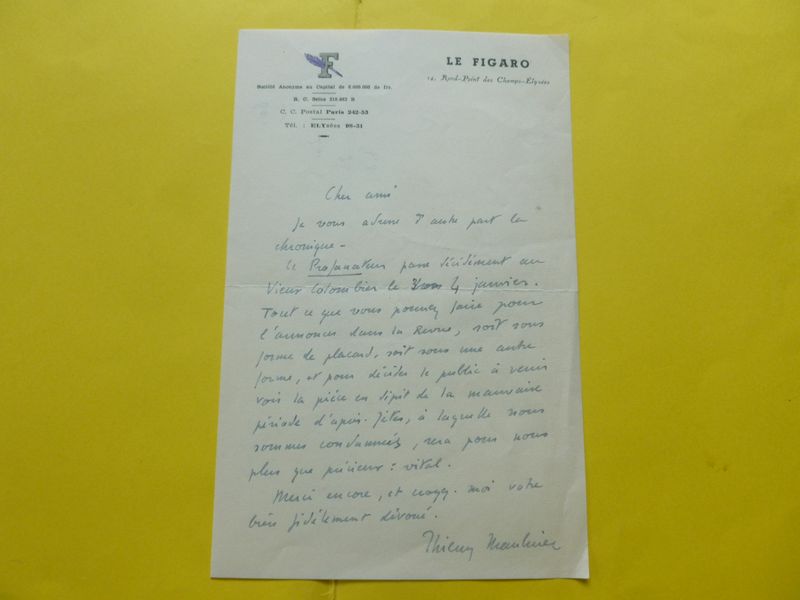 F
Société Anonyme au Capital de 6.000.000 de frs.
R. C. Seine 218.652 B
C. C. Postal Paris 242-53
Tél. : ELYsées 98-31
LE FIGARO
14, Rond-Point des Champs-Élysées
Cher ami
Je vous adresse d'autre part la
chronique -
Le Profanateur passe décidément au
Vieux Colombier le 4 janvier.
Tout ce que vous pourrez faire pour
l'annoncer dans la Revue, soit sous
forme de placard, soit sous une autre
forme, et pour décider le public à venir
voir la pièce en dépit de la mauvaise
période d'après-fêtes, à laquelle nous
sommes condamnés, sera pour nous
plus que précieux : vital.
Merci encore, et croyez-moi votre
bien fidèlement dévoué.
Thierry Maulnier